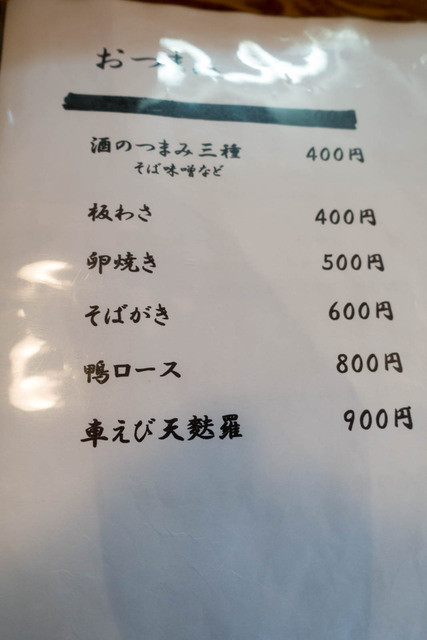 おつま
酒のつまみ三種 400円
そば味噌など
板わさ 400円
卵焼き 500円
そばがき 600円
鴨ロース 800円
車えび天麩羅 900円